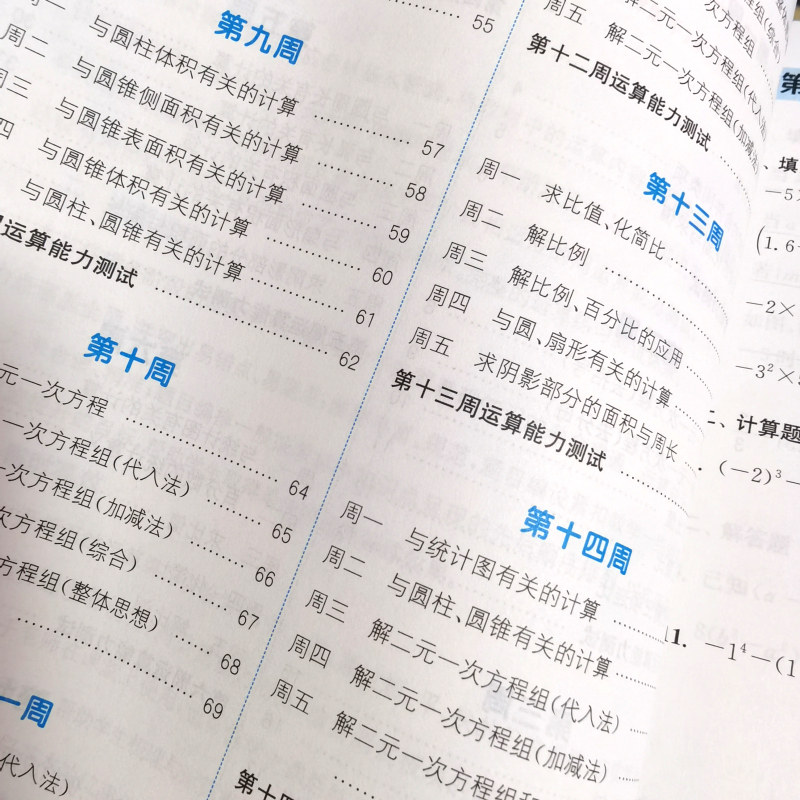 55
第九周
周一 与圆柱体积有关的计算 57
周二 与圆锥侧面积有关的计算 58
周三 与圆锥表面积有关的计算 59
四 与圆锥体积有关的计算 60
与圆柱、圆锥有关的计算 61
运算能力测试 62
第十周
元一次方程 64
一次方程组(代入法) 65
一次方程组(加减法) 66
次方程组(综合) 67
方程组(整体思想) 68
69
一周
代入法)
周五 解二元一次方程组(加减法)
第十二周运算能力测试
第十三周
周一 求比值、化简比
周二 解比例
周三 解比例、百分比的应用
周四 与圆、扇形有关的计算
周五 求阴影部分的面积与周长
第十三周运算能力测试
第十四周
周一 与统计图有关的计算
周二 与圆柱、圆锥有关的计算
周三 解二元一次方程组(代入法)
周四 解二元一次方程组(加减法)
周五 解二元一次方程组
第十四
第
、填
(1.6
-2×
-3²×
二、计算题
(-2)³-
11. -1⁴-(1